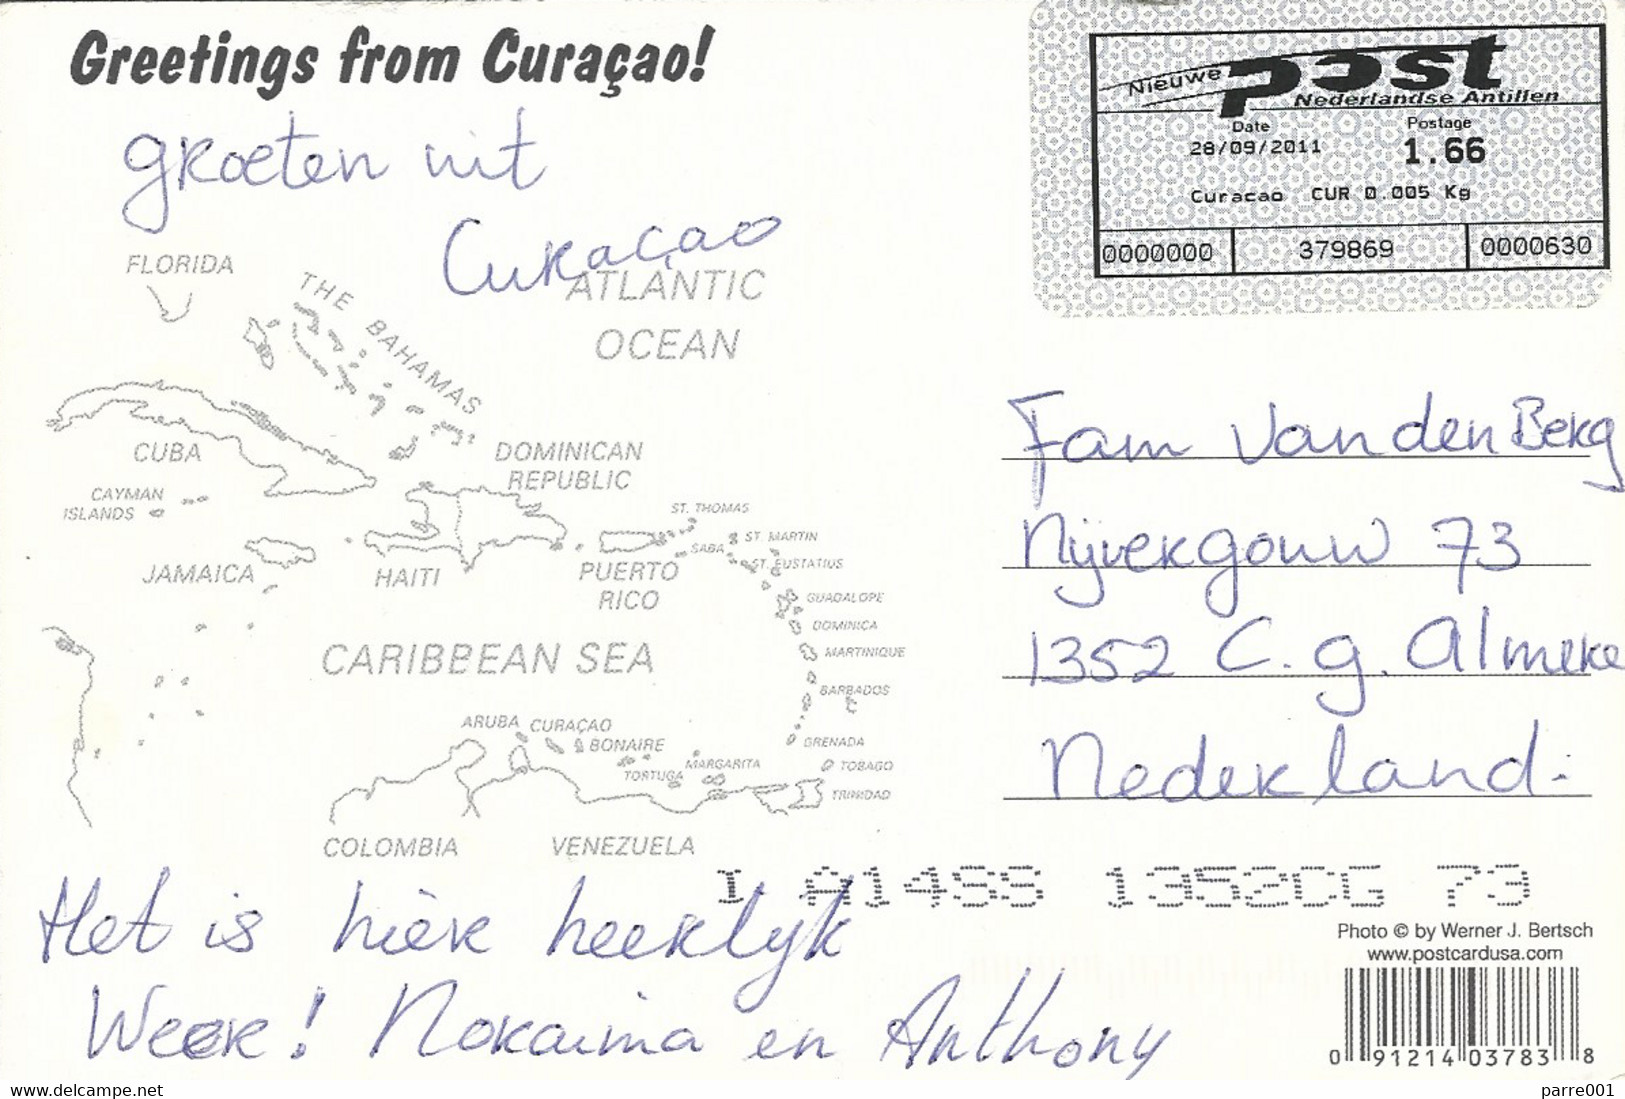 Greetings from Curaçao!
groeten uit
Curaçao
Nieuwe post
Nederlandse Antillen
Date Postage
28/09/2011 1.66
Curacao CUR 0.005 Kg
0000000 379869 0000630
FLORIDA
THE BAHAMAS
ATLANTIC
OCEAN
CUBA
DOMINICAN
REPUBLIC
CAYMAN
ISLANDS
ST. THOMAS
ST. MARTIN
SABA
ST. EUSTATIUS
JAMAICA
HAITI
PUERTO
RICO
GUADALOPE
DOMINICA
CARIBBEAN SEA
MARTINIQUE
BARBADOS
ARUBA CURAÇAO
BONAIRE
GRENADA
TORTUGA
MARGARITA
TOBAGO
TRINIDAD
COLOMBIA
VENEZUELA
Fam Van den Berg
Nijvergouw 73
1352 C.g. Almere
Nederland.
I A14SS 1352CG 73
Het is hièr heerlijk
Weer! Noraima en Anthony
Photo © by Werner J. Bertsch
www.postcardusa.com
0 91214 03783 8
www.delcampe.net
parre001